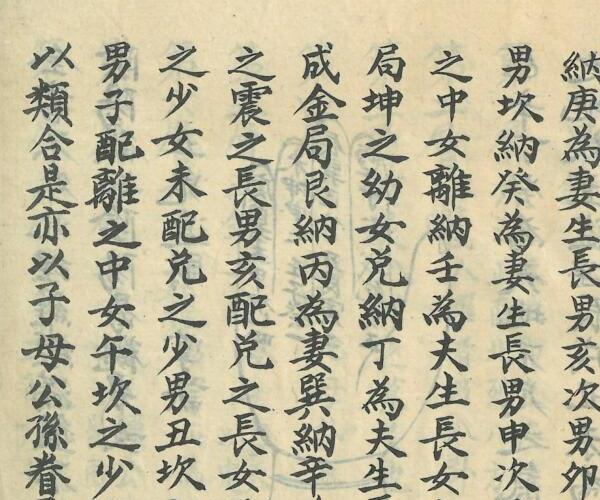 納庚為妻生長男亥次男卯
男坎納癸為妻生長男申次
之中女離納壬為夫生長女
局坤之幼女兌納丁為夫生
成金局艮納丙為妻巽納辛
之震之長男亥配兌之長女
之少女未配兌之少男丑坎
男子配離之中女午坎之少
以類合是亦以子母公孫眷